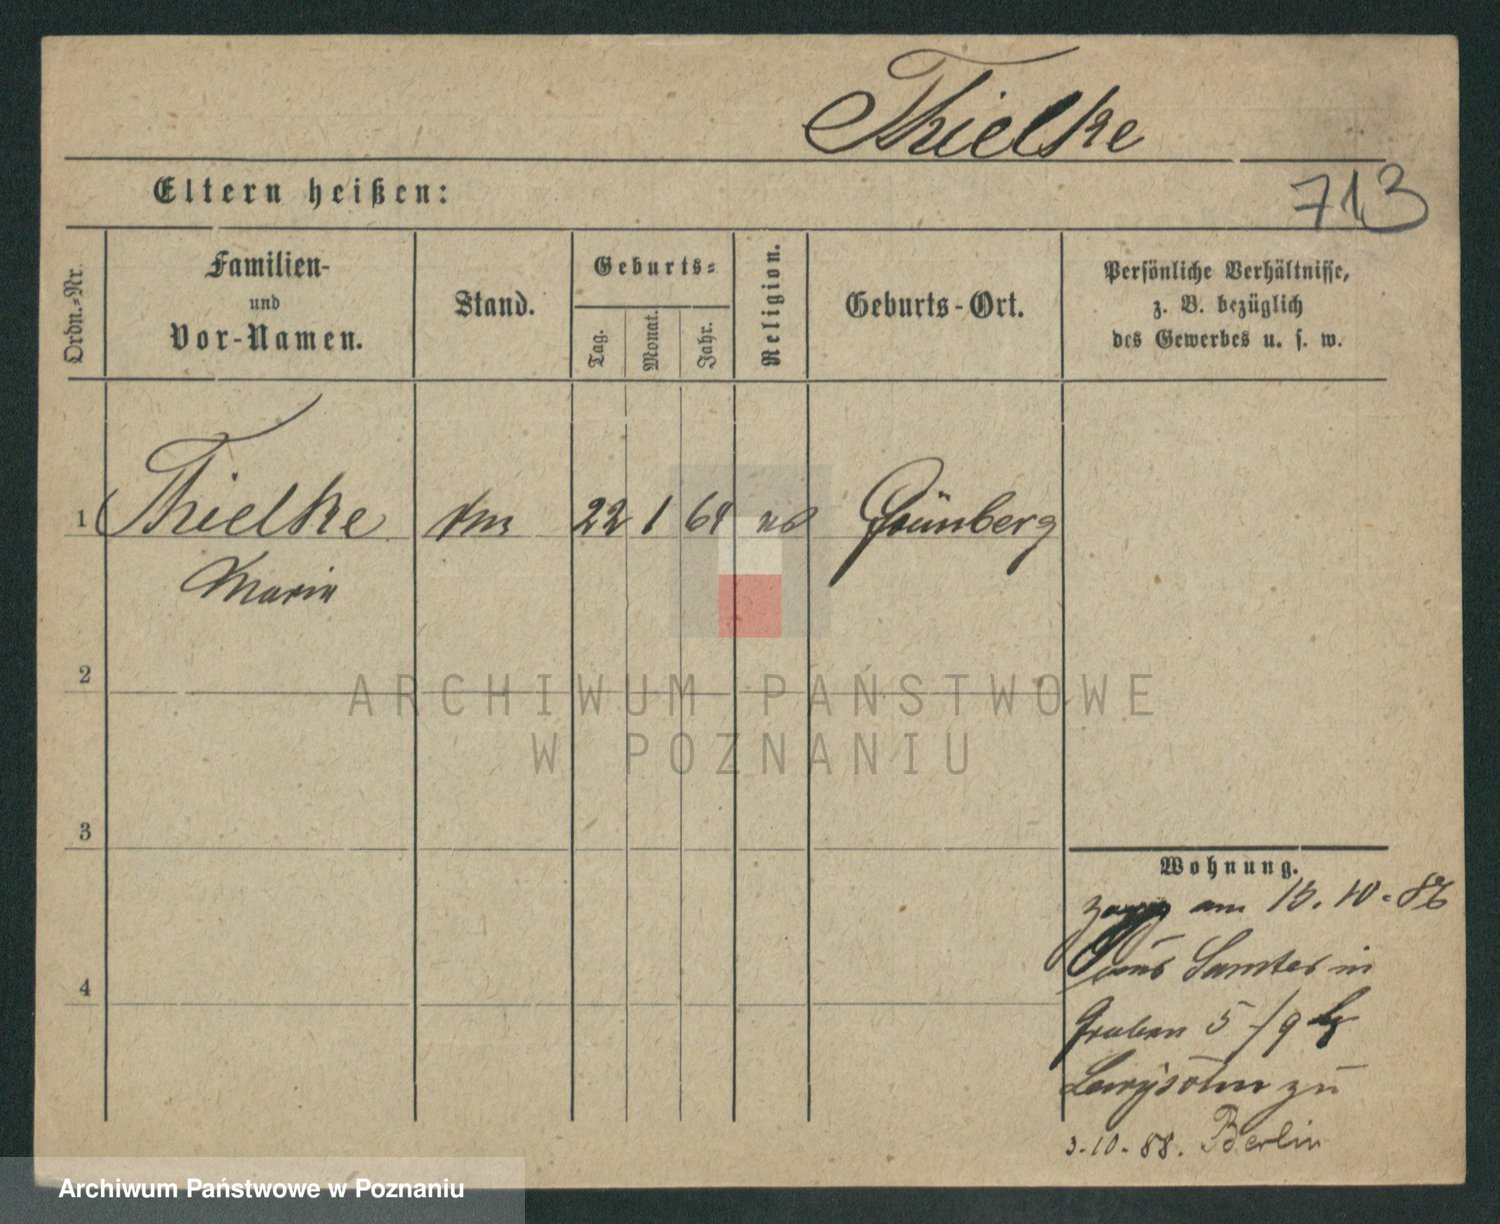 Thielke
713
Eltern heißen:
Ordn.-Nr.
Familien-
und
Vor-Namen.
Stand.
Geburts-
Tag.
Monat.
Jahr.
Religion.
Geburts-Ort.
Persönliche Verhältnisse,
z. B. bezüglich
des Gewerbes u. s. w.
1 Thielke 22 1 64 Grünberg
Marie
2
3
4
ARCHIWUM PAŃSTWOWE
W POZNANIU
Wohnung.
am 15.10.86
aus Samter in
Graben 5/9
Lewysohn zu
3.10.88. Berlin
Archiwum Państwowe w Poznaniu